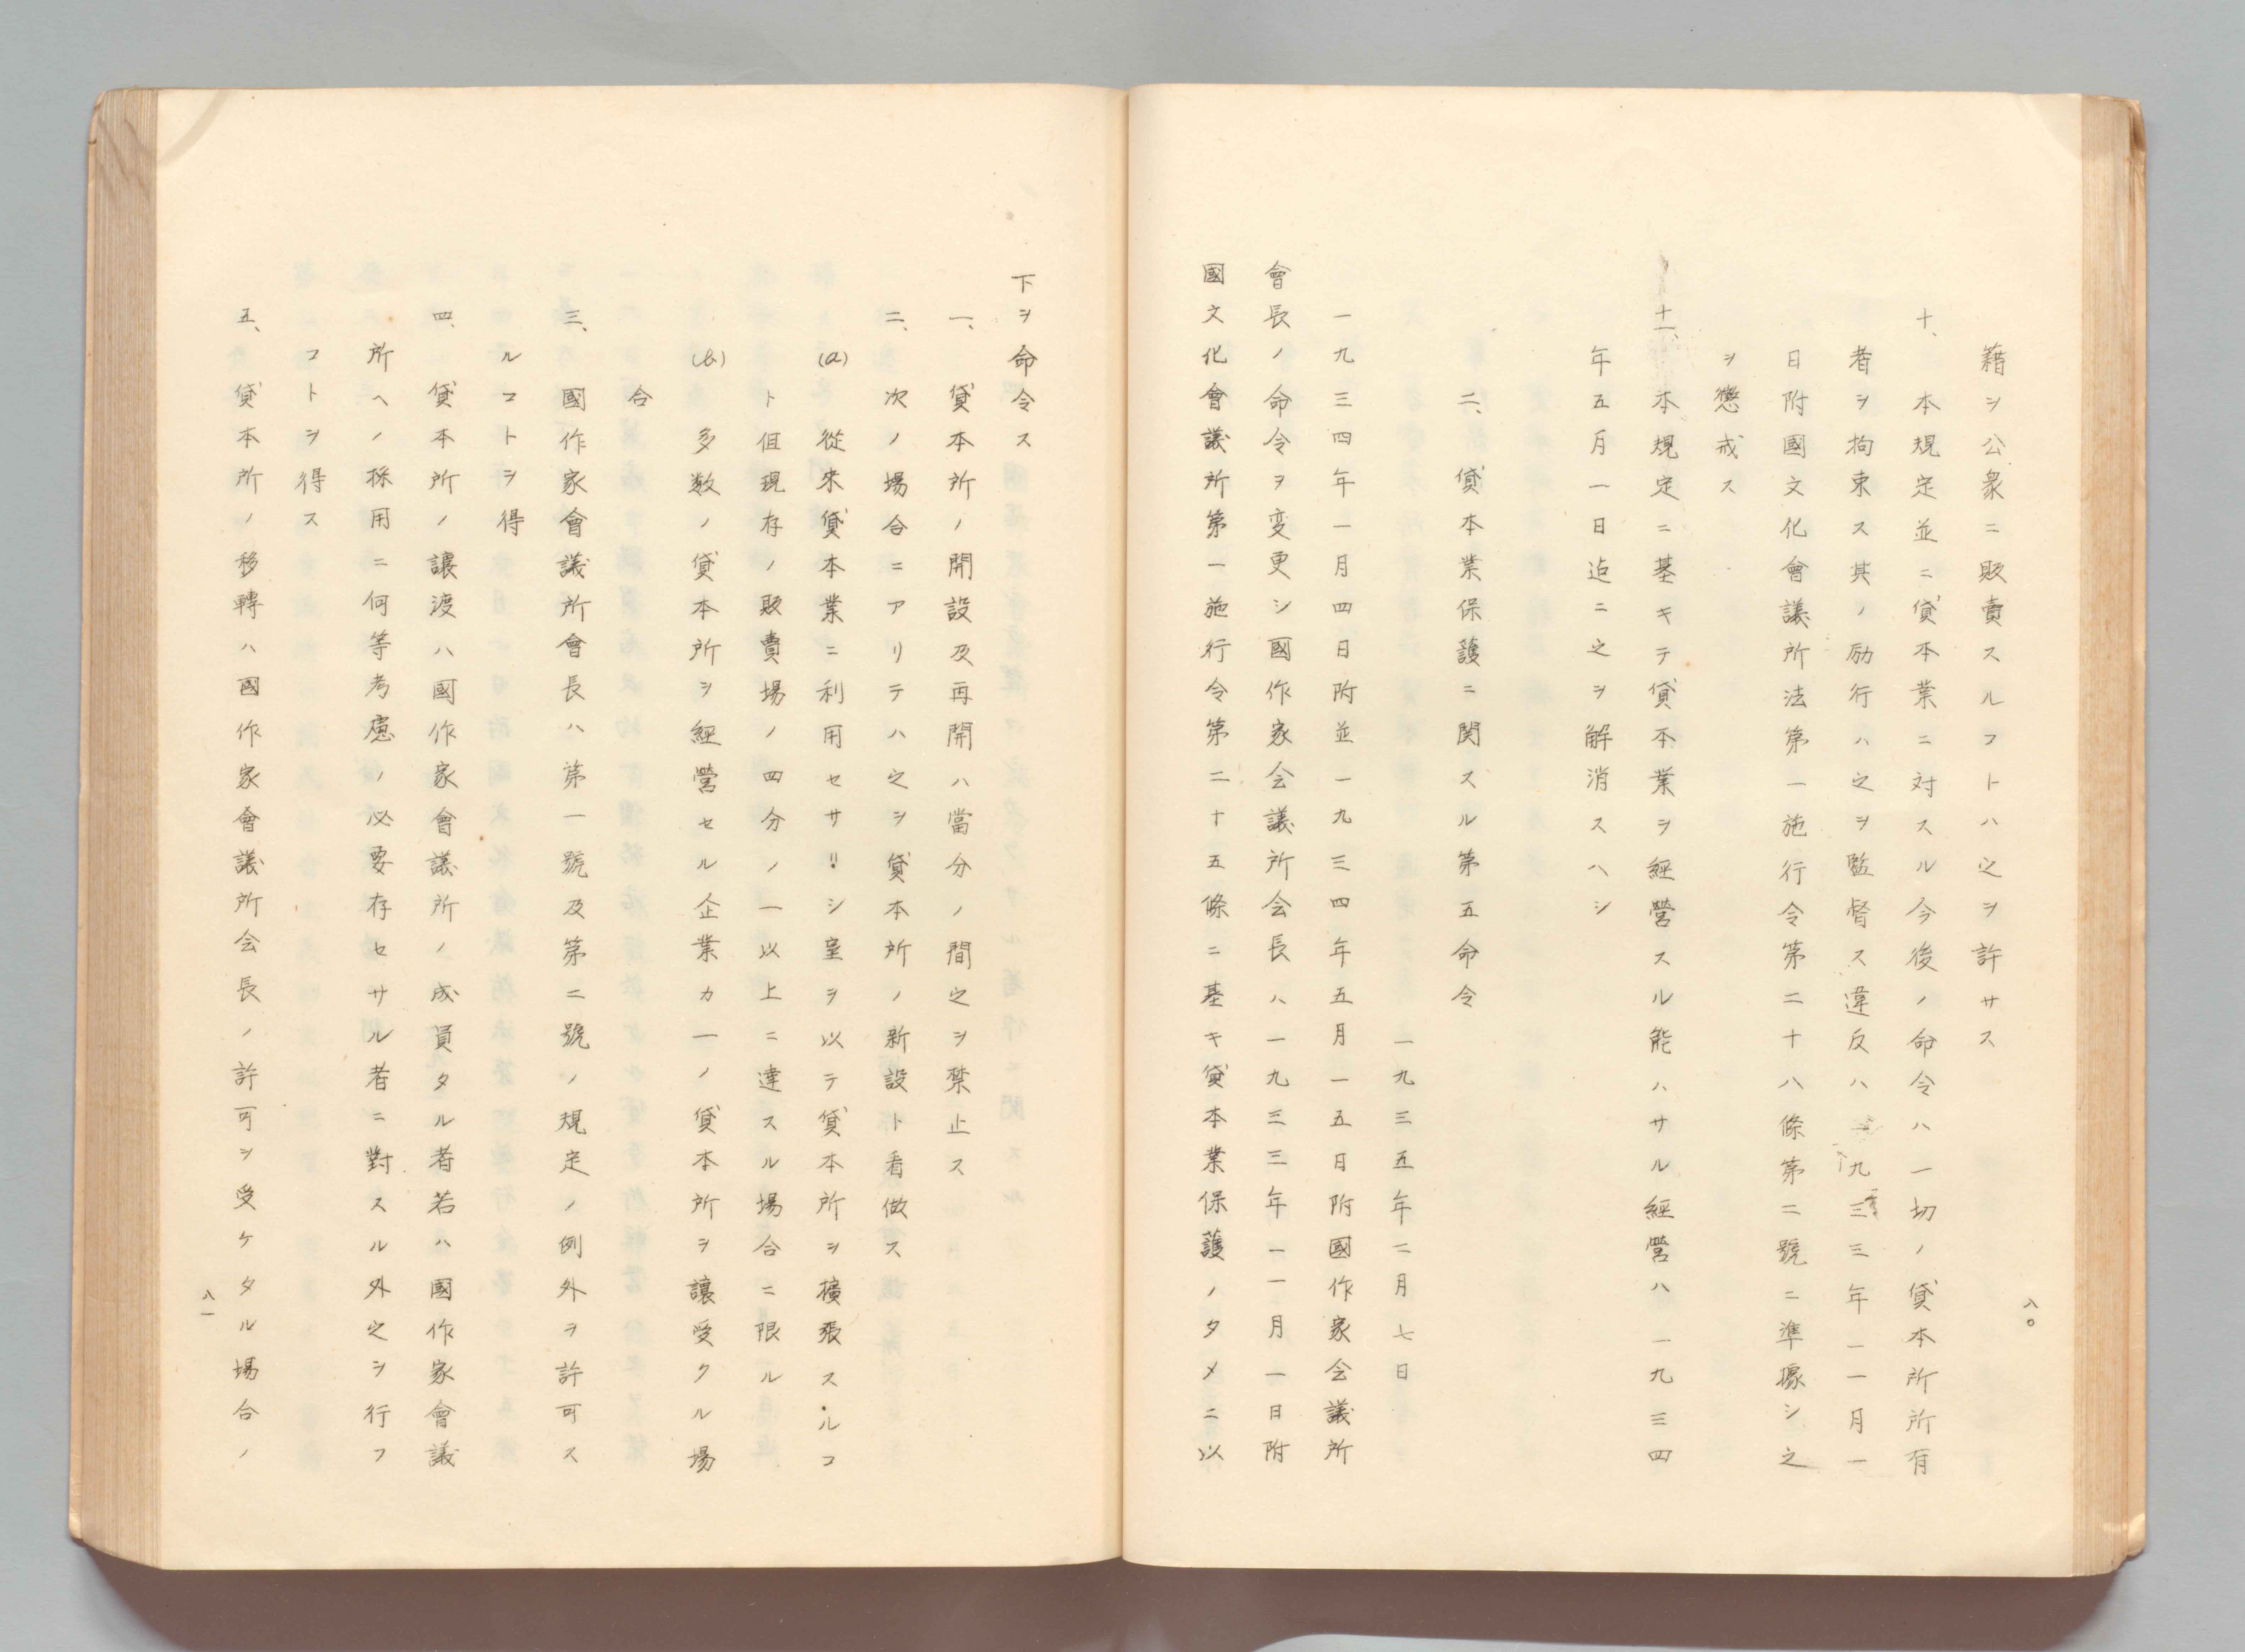 籍ヲ公衆ニ販賣スルコトハ之ヲ許サス
十、本規定並ニ貸本業ニ対スル今後ノ命令ハ一切ノ貸本所所有
者ヲ拘束ス其ノ励行ハ之ヲ監督ス違反ハ一九三三年一一月一
日附國文化會議所法第一施行令第二十八條第二號ニ準據シ之
ヲ懲戒ス
十一、本規定ニ基キテ貸本業ヲ經營スル能ハサル經營ハ一九三四
年五月一日迠ニ之ヲ解消スヘシ
二、貸本業保護ニ関スル第五命令
一九三五年二月七日
一九三四年一月四日附並一九三四年五月一五日附國作家会議所
會長ノ命令ヲ変更シ國作家会議所会長ハ一九三三年一一月一日附
國文化會議所第一施行令第二十五條ニ基キ貸本業保護ノタメニ以
八〇
下ヲ命令ス
一、貸本所ノ開設及再開ハ當分ノ間之ヲ禁止ス
二、次ノ場合ニアリテハ之ヲ貸本所ノ新設ト看做ス
(a) 從來貸本業ニ利用セサリシ室ヲ以テ貸本所ヲ擴張スルコ
ト但現存ノ販賣場ノ四分ノ一以上ニ達スル場合ニ限ル
(b) 多数ノ貸本所ヲ經營セル企業カ一ノ貸本所ヲ讓受クル場
合
三、國作家會議所會長ハ第一號及第二號ノ規定ノ例外ヲ許可ス
ルコトヲ得
四、貸本所ノ讓渡ハ國作家會議所ノ成員タル者若ハ國作家會議
所ヘノ採用ニ何等考慮ノ必要存セサル者ニ對スル外之ヲ行フ
コトヲ得ス
五、貸本所ノ移轉ハ國作家會議所会長ノ許可ヲ受ケタル場合ノ
八一